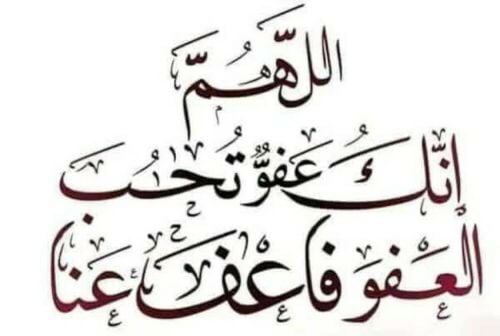 اللهم
إنك عفو تحب
العفو فاعف عنا